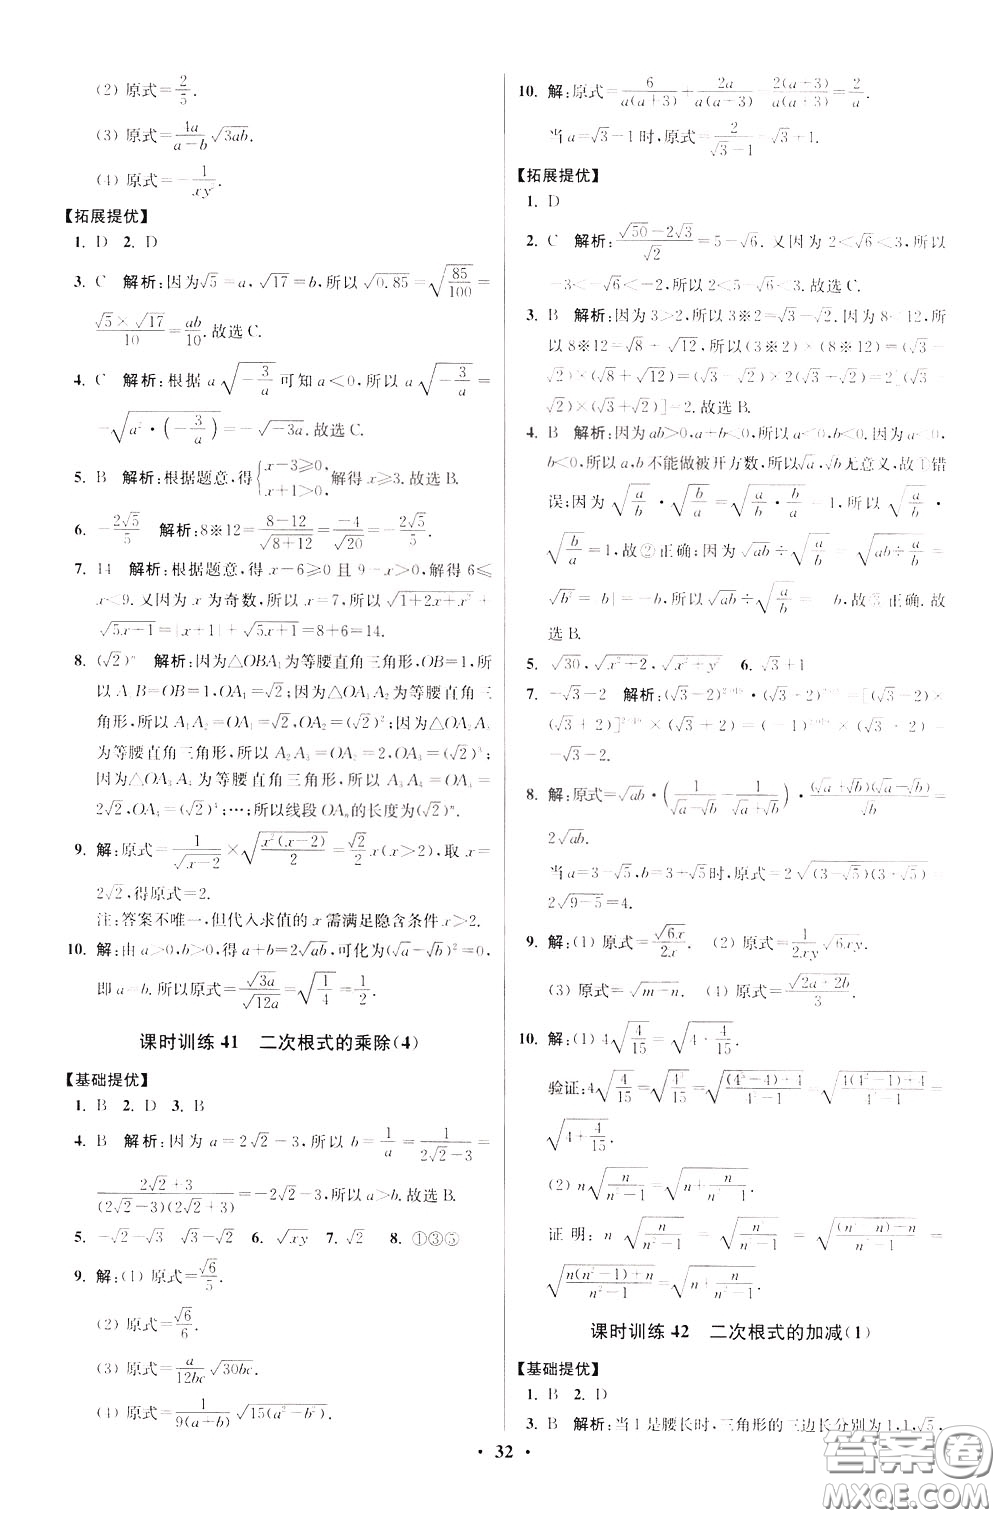 (2) 原式=2/5.
(3) 原式=4a/(a-b) √(3ab).
(4) 原式=-1/(xy²).
【拓展提优】
1. D 2. D
3. C 解析:因为√5=a,√17=b,所以√0.85=√(85/100)=
(√5×√17)/10=ab/10.故选C.
4. C 解析:根据a√(-3/a)可知a<0,所以a√(-3/a)=
-√(a²·(-3/a))=-√(-3a).故选C.
5. B 解析:根据题意,得{x-3≥0, x+1>0,解得x≥3.故选B.
6. -2√5/5 解析:8※12=(8-12)/√(8+12)=-4/√20=-2√5/5.
7. 14 解析:根据题意,得x-6≥0且9-x>0,解得6≤
x<9.又因为x为奇数,所以x=7,所以√(1+2x+x²)+
√(5x+1)=|x+1|+√(5x+1)=8+6=14.
8. (√2)ⁿ 解析:因为△OBA₁为等腰直角三角形,OB=1,所
以A₁B=OB=1,OA₁=√2;因为△OA₁A₂为等腰直角三
角形,所以A₁A₂=OA₁=√2,OA₂=(√2)²;因为△OA₂A₃
为等腰直角三角形,所以A₂A₃=OA₂=2,OA₃=(√2)³;
因为△OA₃A₄为等腰直角三角形,所以A₃A₄=OA₃=
2√2,OA₄=(√2)⁴;…;所以线段OAₙ的长度为(√2)ⁿ.
9. 解:原式=1/√(x-2)×√(x²(x-2)/2)=√2/2 x(x>2),取x=
2√2,得原式=2.
注:答案不唯一,但代入求值的x需满足隐含条件x>2.
10. 解:由a>0,b>0,得a+b=2√(ab),可化为(√a-√b)²=0,
即a=b.所以原式=√(3a)/√(12a)=√(1/4)=1/2.
课时训练41 二次根式的乘除(4)
【基础提优】
1. B 2. D 3. B
4. B 解析:因为a=2√2-3,所以b=1/a=1/(2√2-3)=
(2√2+3)/((2√2-3)(2√2+3))=-2√2-3,所以a>b.故选B.
5. -√2-√3 √3-√2 6. √(xy) 7. √2 8. ①③⑤
9. 解:(1) 原式=√6/5.
(2) 原式=√6/6.
(3) 原式=a/(12bc) √(30bc).
(4) 原式=1/(9(a+b)) √(15(a²-b²)).
10. 解:原式=6/(a(a+3))+2a/(a(a+3))=2(a+3)/(a(a+3))=2/a.
当a=√3-1时,原式=2/(√3-1)=√3+1.
【拓展提优】
1. D
2. C 解析:(√50-2√3)/√2=5-√6.又因为2<√6<3,所以
-3<-√6<-2,所以2<5-√6<3.故选C.
3. B 解析:因为3>2,所以3※2=√3-√2.因为8<12,所
以8※12=√8+√12,所以(3※2)×(8※12)=(√3-
√2)×(√8+√12)=(√3-√2)×2(√3+√2)=2[(√3-
√2)×(√3+√2)]=2.故选B.
4. B 解析:因为ab>0,a+b<0,所以a<0,b<0.因为a<0,
b<0,所以a,b不能做被开方数,所以√a,√b无意义,故①错
误;因为√(a/b)·√(b/a)=√(a/b·b/a)=√1=1,所以√(a/b)·
√(b/a)=1,故②正确;因为√(ab)÷√(a/b)=√(ab÷a/b)=
√(b²)=|b|=-b,所以√(ab)÷√(a/b)=-b,故③正确.故
选B.
5. √30,√(x²+2),√(x²+y²) 6. √3+1
7. -√3-2 解析:(√3-2)²⁰¹⁸·(√3+2)²⁰¹⁹=[(√3-2)×
(√3+2)]²⁰¹⁸×(√3+2)=(-1)²⁰¹⁸×(√3+2)=
-√3-2.
8. 解:原式=√(ab)·(1/(√a-√b)-1/(√a+√b))·((√a+√b)(√a-√b))/1=
2√(ab).
当a=3-√5,b=3+√5时,原式=2√((3+√5)(3-√5))=
2√(9-5)=4.
9. 解:(1) 原式=√(6x)/(2x). (2) 原式=1/(2xy) √(6xy).
(3) 原式=√(m-n). (4) 原式=√(2a+2b)/3.
10. 解:(1) 4√(4/15)=√(4+4/15).
验证:4√(4/15)=√(4³/15)=√(((4³-4)+4)/(4²-1))=√((4(4²-1)+4)/(4²-1))=
√(4+4/15).
(2) n√(n/(n²-1))=√(n+n/(n²-1)).
证明:n√(n/(n²-1))=√(n³/(n²-1))=√(((n³-n)+n)/(n²-1))=
√((n(n²-1)+n)/(n²-1))=√(n+n/(n²-1)).
课时训练42 二次根式的加减(1)
【基础提优】
1. B 2. D
3. B 解析:当1是腰长时,三角形的三边长分别为1,1,√5,
• 32 •
答案圈
MXQE.COM